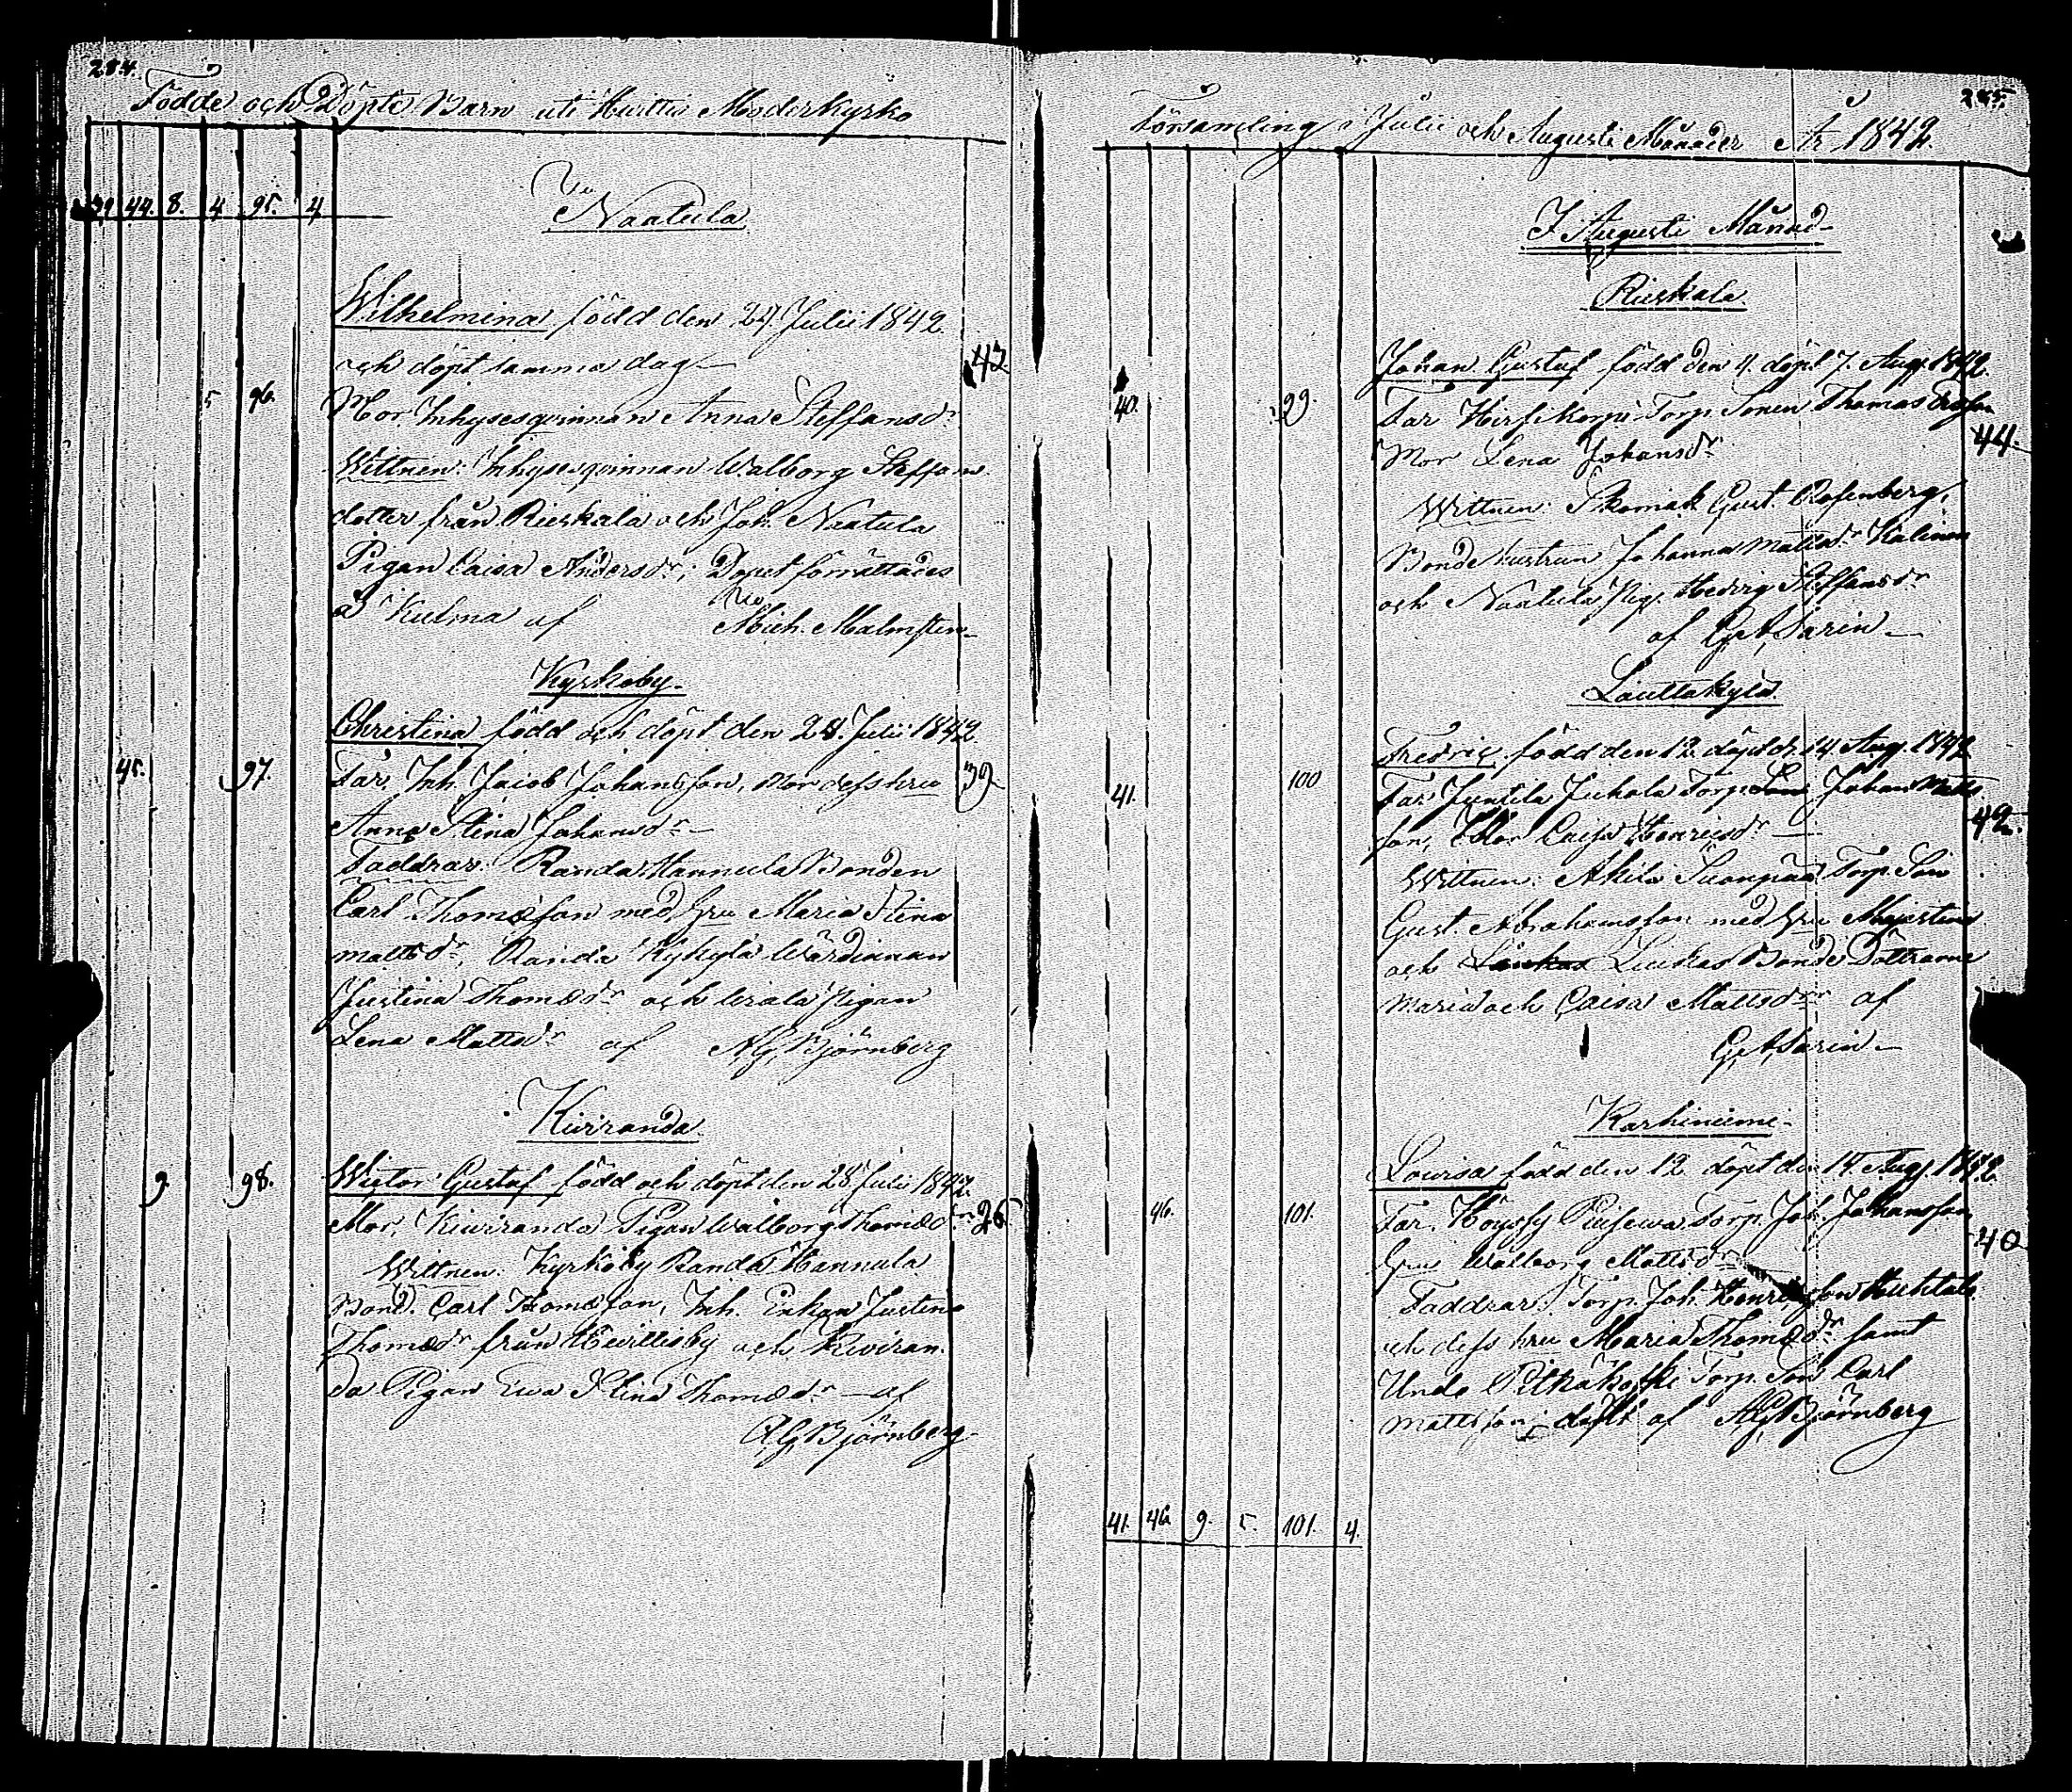 284.
Födde och Döpte Barn uti Huittis Moderkyrko
39 44. 8. 4 95. 4
Naatula
Wilhelmina född den 24. Julii 1842
och döpt samma dag 42
5 96. Mor. Inhysesqvinnan Anna Steffansdr
Wittnen: Inhysesqvinnan Walborg Steffans
dotter från Rieskala och Joh. Naatula
Pigan Caisa Andersdr; Dopet förrättades
i Kulma af Mich. Malmsten
Kyrkoby
Christina född och döpt den 28. Julii 1842
45. 97. Far. Inh. Jacob Johansson, Mor dess hru 39
Anna Stina Johansdr
Faddrar: Randa Hannula Bonden
Carl Thomæson med hru Maria Stina
Mattsdr, Randa Kykylä Wärdinnan
Justina Thomædr och Uiala Pigan
Lena Mattsdr af AG, Björnberg
Kiviranda
Wictor Gustaf född och döpt den 28 Julii 1842.
9. 98. Mor, Kiviranda Pigan Walborg Thomædr 26
Wittnen: Kyrkoby Randa Hannula
Bond. Carl Thomæson, Inh. Enkan Justina
Thomædr från Huittisby och Kiviran
da Pigan Ewa Stina Thomædr af
AG, Björnberg
285.
Församling i Julii och Augusti Månader År 1842.
I Augusti Månad
Rieskala
Johan Gustaf född den 4. döpt 7. Aug. 1842.
40. 99. Far Torp. Sonen Thomas
Mor Lena Johansdr 44
Wittnen: Skomak. Gust. Rosenberg,
Bonde hustrun Johanna Mattsdr
och Naatula Pig. Hedvig Steffansdr
af G, A, Sarin
Lauttakylä
Fredric född den 12 döpt d. 14 Aug. 1842
41. 100 Far Juntila Juhala Torp. Johan Matts
son, Mor Caisa Henricsdr 42.
Wittnen: Torp. Son
Gust. Abrahamsson med hru Maja Stina
och Laukas Laukas Bonde Döttrarne
Maria och Caisa Mattsdr af
G, A, Sarin
Karhiniemi
Lovisa född den 12 döpt den 14 Aug. 1842
46. 101. Far. Torp. Joh. Johansson
hru Walborg Mattsdr 40
Faddrar: Torp. Joh. Henricsson Huhtala
och dess hru Maria Thomædr samt
Unde Pitkäkoski Torp. Son Carl
Mattsson; döpt af AG, Björnberg
41. 46 9. 5. 101. 4.